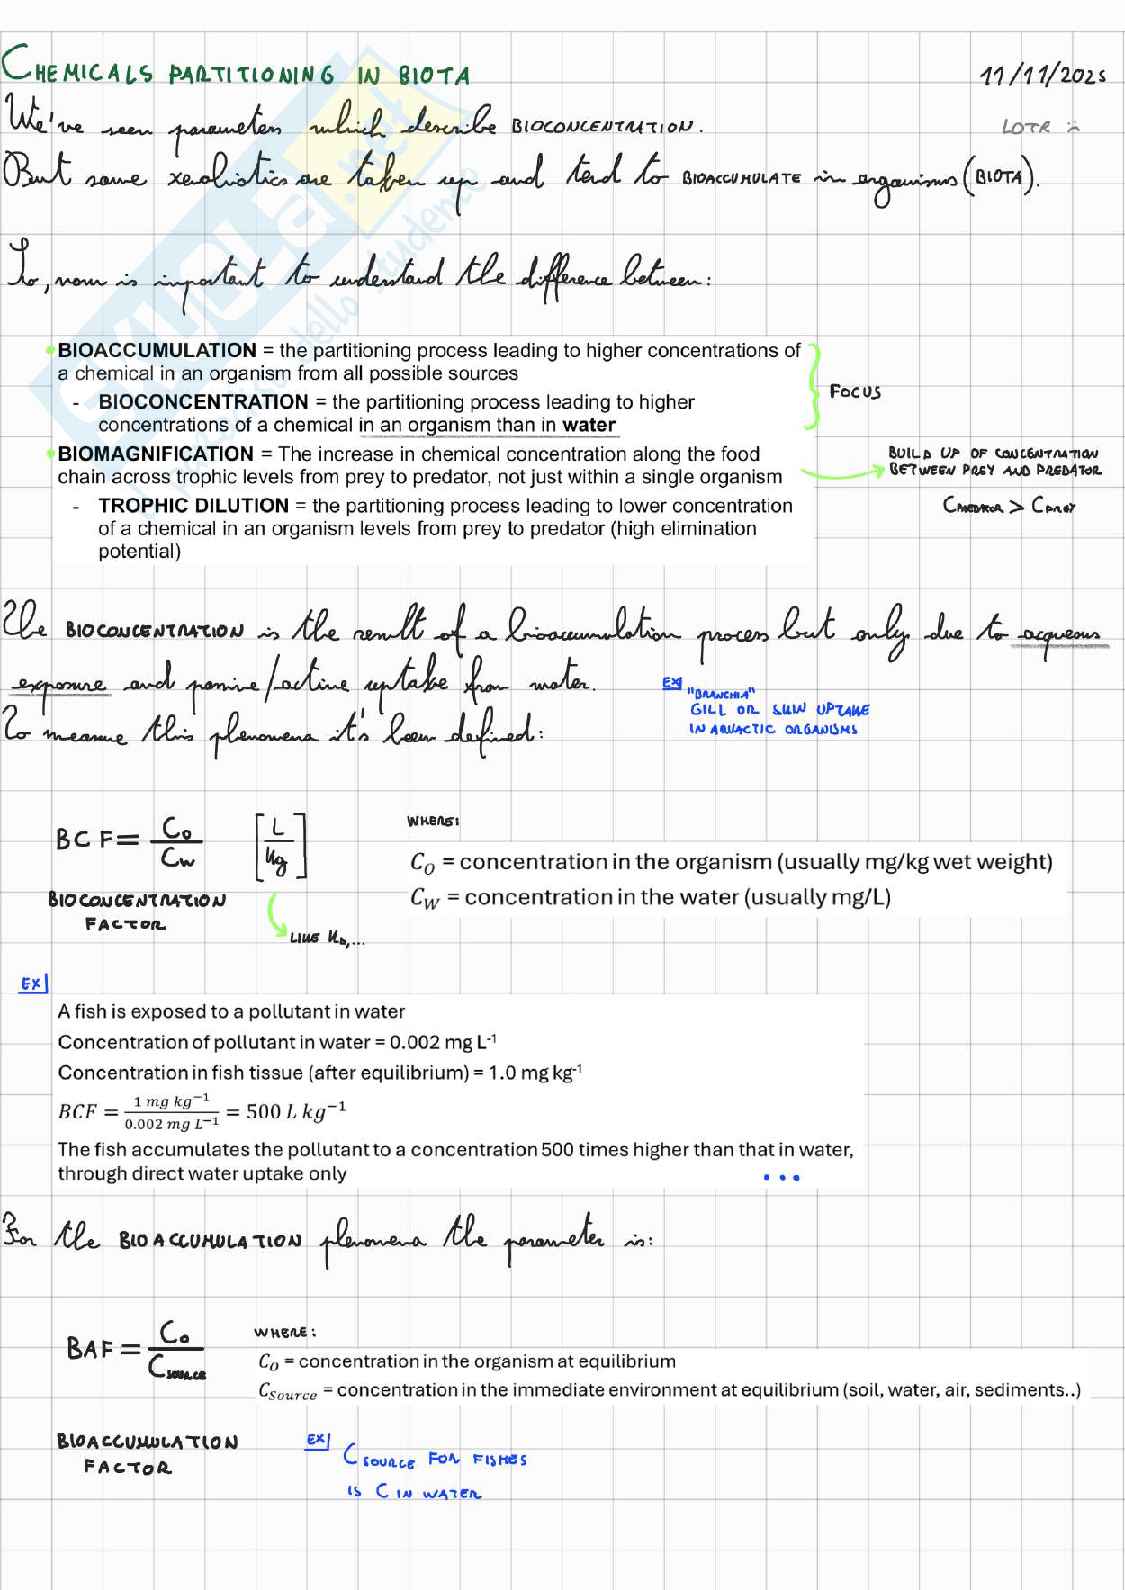 CHEMICALS PARTITIONING IN BIOTA
11/11/2025
We've seen parameters which describe BIOCONCENTRATION.
LOTR
But some xenobiotics are taken up and tend to BIOACCUMULATE in organisms (BIOTA).
So, now is important to understand the difference between:
BIOACCUMULATION = the partitioning process leading to higher concentrations of
a chemical in an organism from all possible sources
- BIOCONCENTRATION = the partitioning process leading to higher
concentrations of a chemical in an organism than in water
FOCUS
BIOMAGNIFICATION = The increase in chemical concentration along the food
chain across trophic levels from prey to predator, not just within a single organism
BUILD UP OF CONCENTRATION
BETWEEN PREY AND PREDATOR
- TROPHIC DILUTION = the partitioning process leading to lower concentration
of a chemical in an organism levels from prey to predator (high elimination
potential)
C PREDATOR > C PREY
The BIOCONCENTRATION is the result of a bioaccumulation process but only due to acqueous
exposure and passive/active uptake from water.
To measure this phenomena it's been defined:
EX
"BRANCHIA"
GILL OR SKIN UPTAKE
IN AQUACTIC ORGANISMS
BCF = Co / Cw [L / Kg]
BIOCONCENTRATION
FACTOR
LIKE KD, ...
WHERE:
CO = concentration in the organism (usually mg/kg wet weight)
CW = concentration in the water (usually mg/L)
EX
A fish is exposed to a pollutant in water
Concentration of pollutant in water = 0.002 mg L-1
Concentration in fish tissue (after equilibrium) = 1.0 mg kg-1
BCF = 1 mg kg−1 / 0.002 mg L−1 = 500 L kg−1
The fish accumulates the pollutant to a concentration 500 times higher than that in water,
through direct water uptake only
...
For the BIOACCUMULATION phenomena the parameter is:
BAF = Co / C SOURCE
BIOACCUMULATION
FACTOR
WHERE:
CO = concentration in the organism at equilibrium
CSource = concentration in the immediate environment at equilibrium (soil, water, air, sediments..)
EX
C SOURCE FOR FISHES
IS C IN WATER